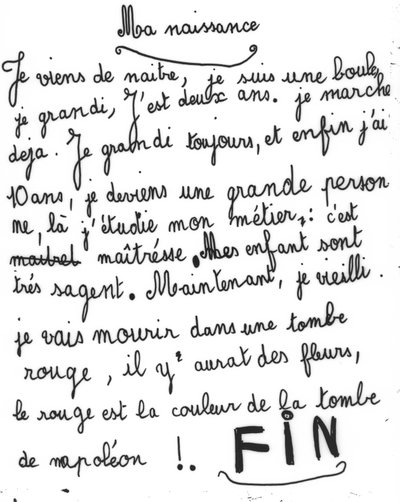 Ma naissance
Je viens de naitre, je suis une boule,
je grandi, J'est deux ans. je marche
deja. Je grandi toujours, et enfin j'ai
10 ans, je deviens une grande person
ne, là j'étudie mon métier, : c'est
maitrel maîtrésse. Mes enfant sont
trés sagent. Maintenant, je vieilli.
je vais mourir dans une tombe
rouge, il y aurat des fleurs,
le rouge est la couleur de la tombe
de napoléon !.
FIN